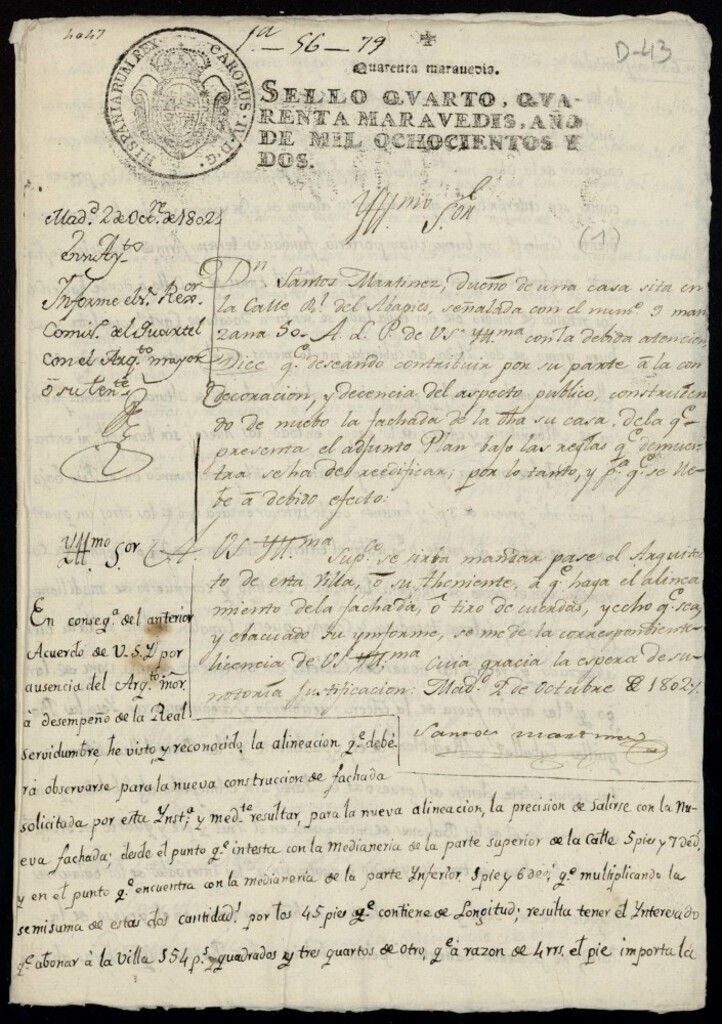 4047
1ª - 56 - 79
D-43
HISPANIARUM REX CAROLUS IV D G
Quarenta maravedis.
SELLO QVARTO, QVA-
RENTA MARAVEDIS, AÑO
DE MIL OCHOCIENTOS Y
DOS.
Yllmo Sor
(1)
Madd. 2 de Octre. de 1802
En su Ayto
Informe el Sr. Rexor
Comiso. del Quartel
con el Arqto mayor
ó su Tente
Dn. Santos Martinez, dueño de una casa sita en
la Calle Rl. del Abapies, señalada con el numo. 9 man
zana 50. A. L. P. de VS Yllma con la debida atencion,
Dice qe. deseando contribuir por su parte à la con
decoracion, y decencia del aspecto publico, construien
do de nuebo la fachada de la dha su casa, de la qe.
presenta el adjunto Plan bajo las reglas qe. demues-
tra se ha de reedificar; por lo tanto, y pa. qe. se lle-
be à debido efecto:
A. VS Yllma Supco. se sirba mandar pase el Arquitec
to de esta Villa, ò su theniente, à qe. haya el alinea
miento de la fachada, ò tiro de cuerdas, y echo qe. sea,
y ebacuado su ynforme, se me de la correspondiente
licencia de VS Yllma Cuia gracia la espera de su
notoria Justificacion: Madd. 2 de Octubre de 1802
Santos Martinez
Yllmo Sor
En conseqa. del anterior
Acuerdo de V. S. Y. por
ausencia del Arqto. mor.
à desempeño de la Real
servidumbre, he visto, y reconocido la alineacion qe. debe-
rá observarse para la nueva construccion de fachada
solicitada por esta Ynsta.; y medte. resultar, para la nueva alineacion, la precision de salirse con la Nu-
eva fachada; desde el punto qe. intesta con la Medianeria de la parte superior de la Calle 5 pies y 7 ded.
y en el punto qe. encuentra con la medianeria de la parte Ynferior 1 pie y 6 ded.; qe. multiplicando la
semisuma de estas dos cantidads. por los 45 pies qe. contiene de Longitud; resulta tener el Ynteresado
qe. abonar à la Villa 154 ps. quadrados y tres quartos de otro, qe. à razon de 4 rrs. el pie importa la